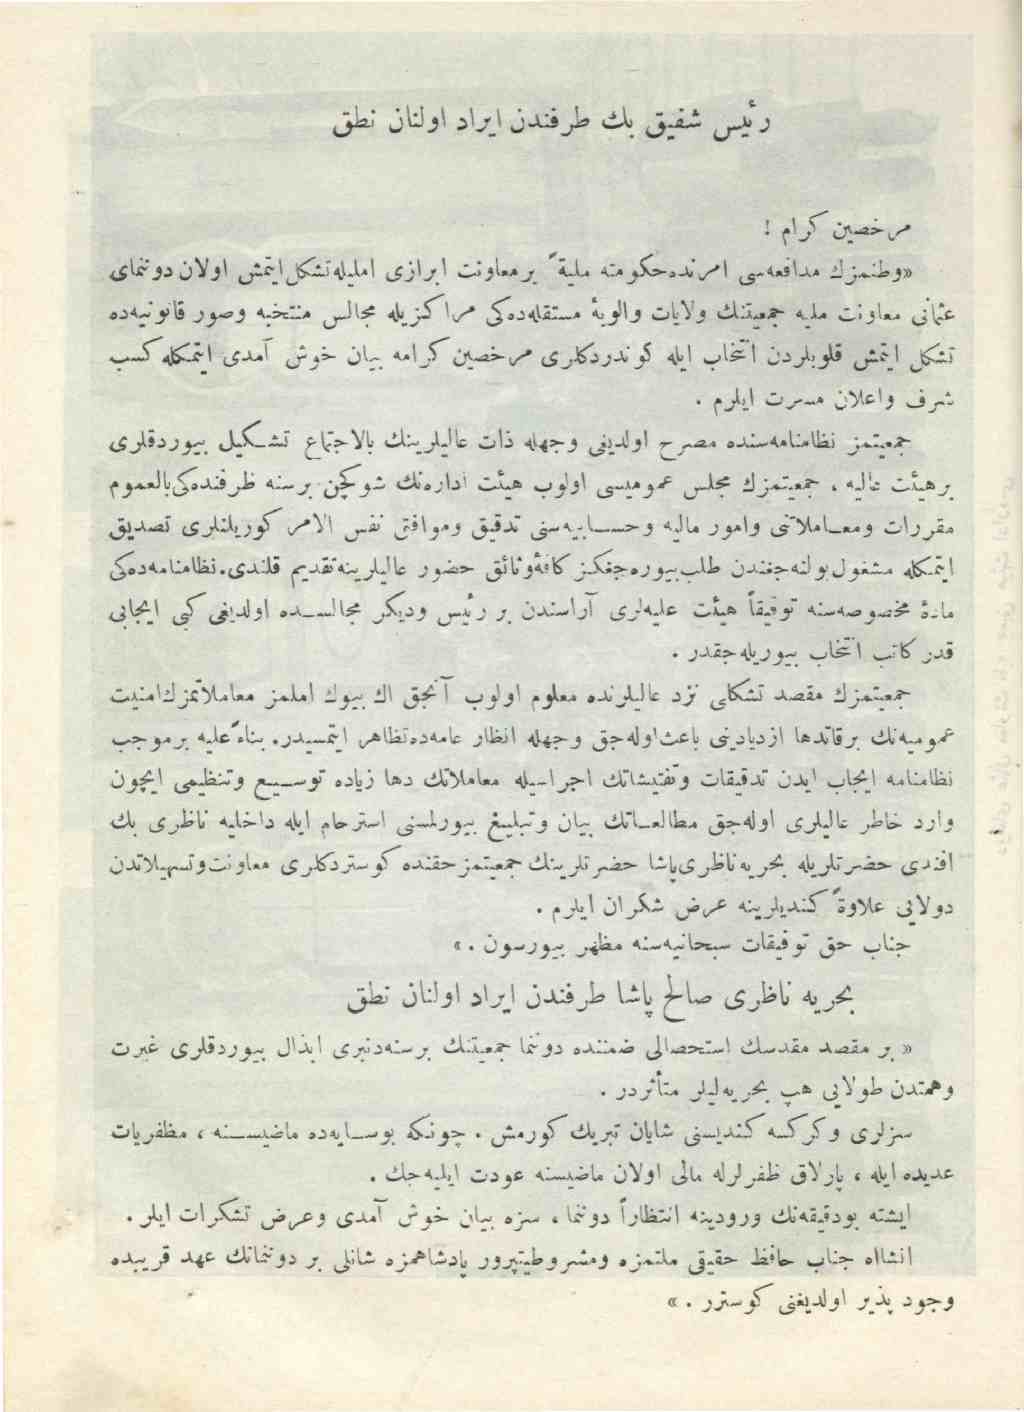 رئیس شفیق بك طرفندن ایراد اولنان نطق
مرخصین كرام !
«وطنمزك مدافعه‌سی امرنده‌حكومته ملیةً برمعاونت ابرازی املیله‌تشكل‌ایتمش اولان دوننمای
عثمانی معاونت ملیه جمعیتنك ولایات والویۀ مستقله‌ده‌كی مراكزیله مجالس منتخبه وصور قانونیه‌ده
تشكل ایتمش قلوبلردن انتخاب ایله كوندردكلری مرخصین كرامه بیان خوش آمدی ایتمكله‌كسب
شرف واعلان مسرت ایلرم .
جمعیتمز نظامنامه‌سنده مصرح اولدیغی وجهله ذات عالیلرینك بالاجتماع تشكیل بیوردقلری
برهیئت عالیه ، جمعیتمزك مجلس عمومیسی اولوب هیئت اداره‌نك شوكچن برسنه ظرفنده‌كی‌بالعموم
مقررات ومعاملاتنی وامور مالیه وحسابیه‌سنی تدقیق وموافق نفس الامر كوریلنلری تصدیق
ایتمكله مشغول‌بولنه‌جغندن طلب‌بیوره‌جغكز كافۀوثائق حضور عالیلرینه‌تقدیم قلندی.نظامنامه‌ده‌كی
مادۀ مخصوصه‌سنه توفیقاً هیئت علیه‌لری آراسندن بر رئیس ودیكر مجالسده اولدیغی كبی ایجابی
قدر كاتب انتخاب بیوریله‌جقدر .
جمعیتمزك مقصد تشكلی نزد عالیلرنده معلوم اولوب آنجق اك بیوك املمز معاملاتمزك‌امنیت
عمومیه‌نك برقاتدها ازدیادینی باعث‌اوله‌جق وجهله انظار عامه‌ده‌تظاهر ایتمسیدر. بناءًعلیه برموجب
نظامنامه ایجاب ایدن تدقیقات وتفتیشاتك اجراسیله معاملاتك دها زیاده توسیع وتنظیمی ایچون
وارد خاطر عالیلری اوله‌جق مطالعاتك بیان وتبلیغ بیورلمسنی استرحام ایله داخلیه ناظری بك
افندی حضرتلریله بحریه‌ناظری‌پاشا حضرتلرینك جمعیتمزحقنده كوستردكلری معاونت‌وتسهیلاتدن
دولایی علاوةً كندیلرینه عرض شكران ایلرم .
جناب حق توفیقات سبحانیه‌سنه مظهر بیورسون . »
بحریه ناظری صالح پاشا طرفندن ایراد اولنان نطق
« بر مقصد مقدسك استحصالی ضمننده دوننما جمعیتنك برسنه‌دنبری ابذال بیوردقلری غیرت
وهمتدن طولایی هپ بحریه‌لیلر متأثردر .
سزلری وكركسه كندیسنی شایان تبریك كورمش . چونكه بوسایه‌ده ماضیسنه ، مظفریات
عدیده ایله ، پارلاق ظفرلرله مالی اولان ماضیسنه عودت ایلیه‌جك .
ایشته بودقیقه‌نك ورودینه انتظاراً دوننما ، سزه بیان خوش آمدی وعرض تشكرات ایلر .
انشاالله جناب حافظ حقیقی ملتمزه ومشروطیتپرور پادشاهمزه شانلی بر دوننمانك عهد قریبده
وجود پذیر اولدیغنی كوسترر . »